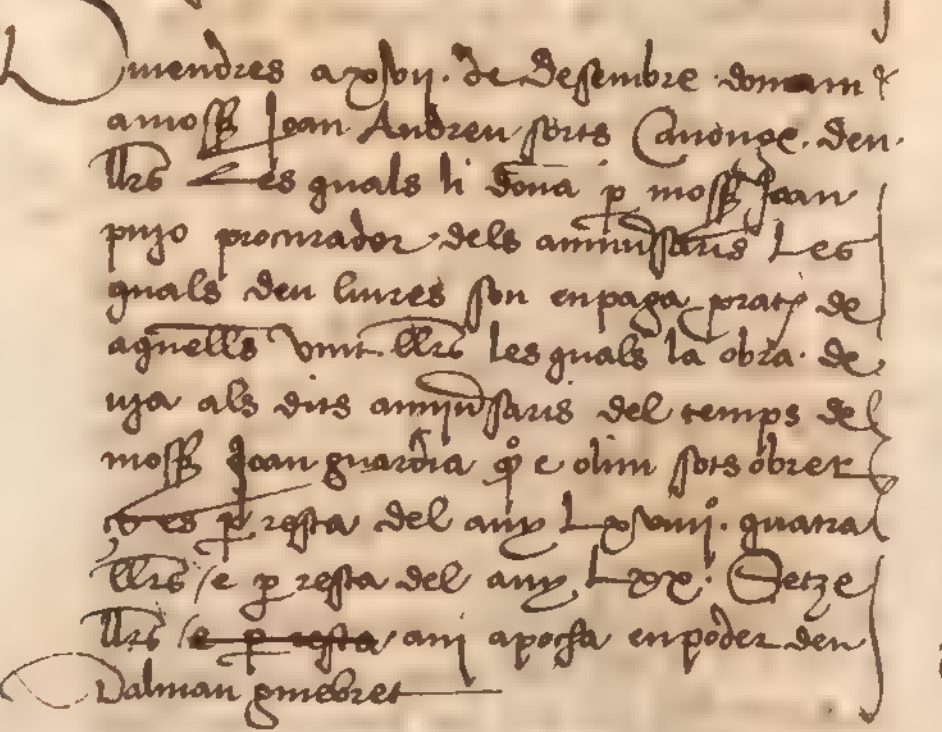 Divendres a xvij. de desembre donam
a moss Joan Andreu sorts Canonge. deu.
llrs Les quals li dona p moss Joan
pujo procurador dels anniussaris Les
quals deu liures son en paga p rata de
aquells vint llrs les quals la obra. de
uja als dits anniussaris del temps del
moss Joan guardia q̊ e olim sots obrer
ço es p resta del any Lxviiij. quatra
llrs e p resta del any Lxx. Setze
llrs e p resta ani apocha en poder den
Dalmau ginebret